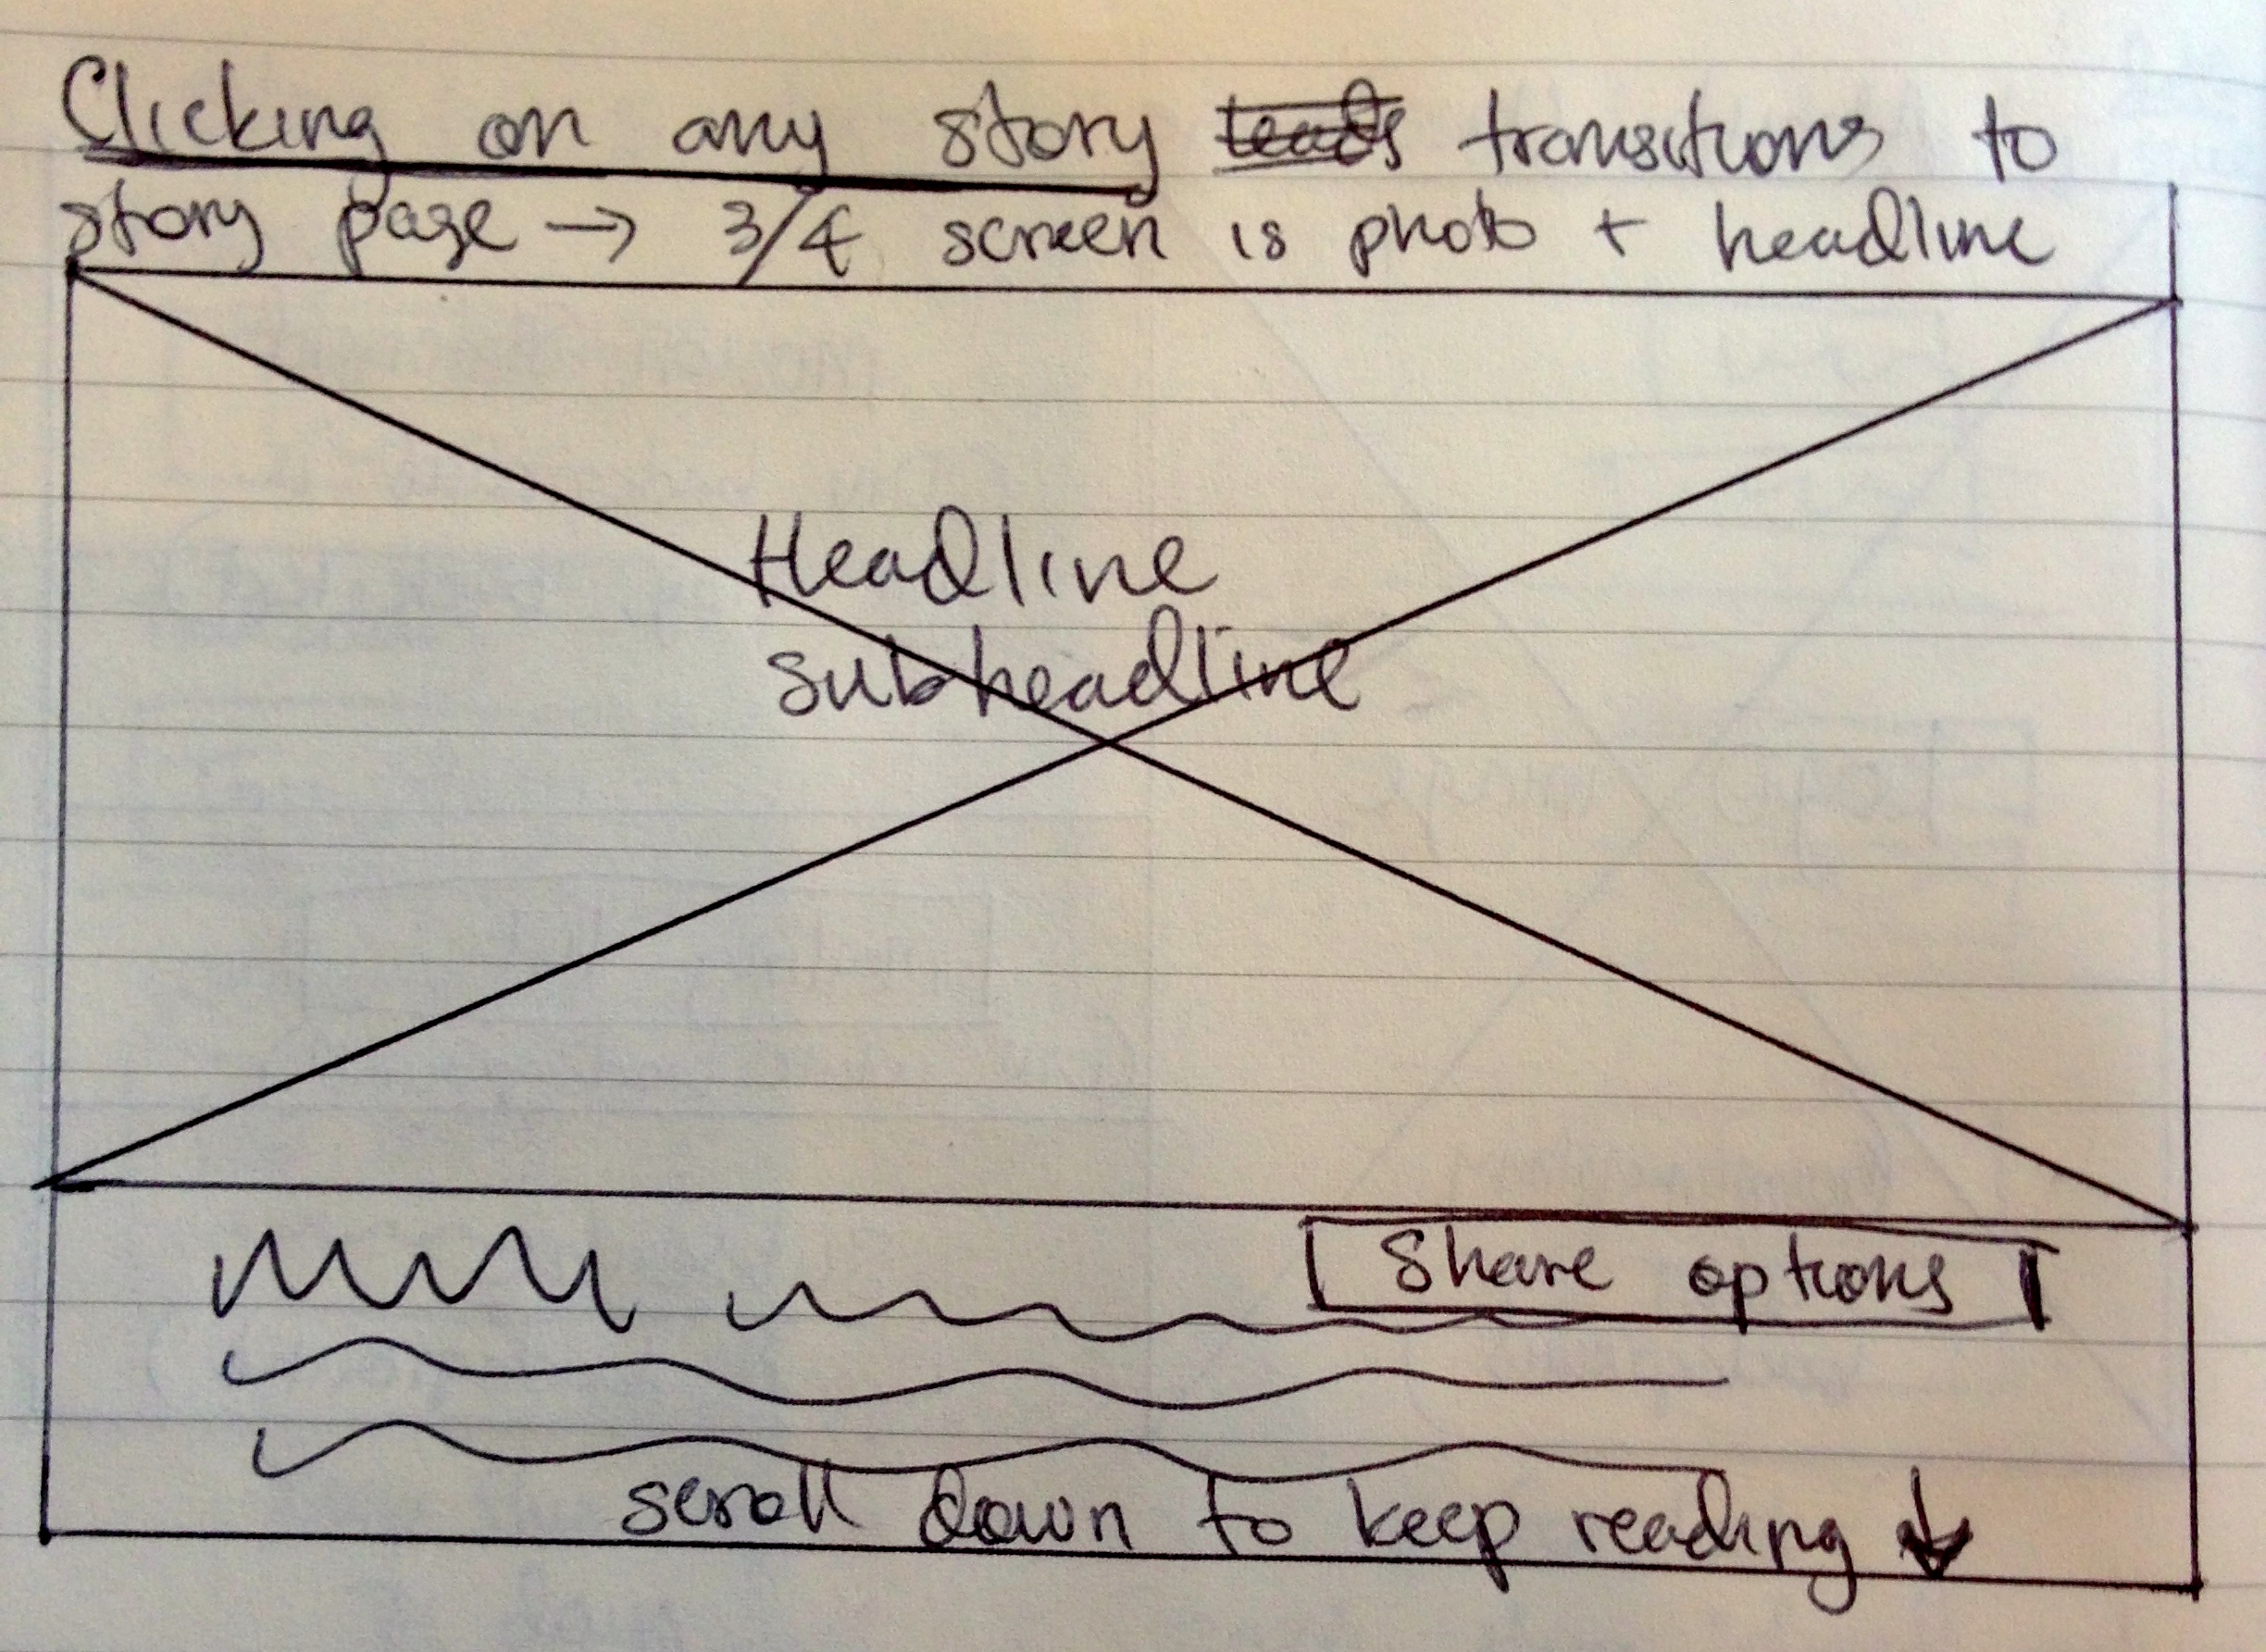 Clicking on any story transitions to
story page → 3/4 screen is photo + headline
Headline
Subheadline
Share options
scroll down to keep reading ↓